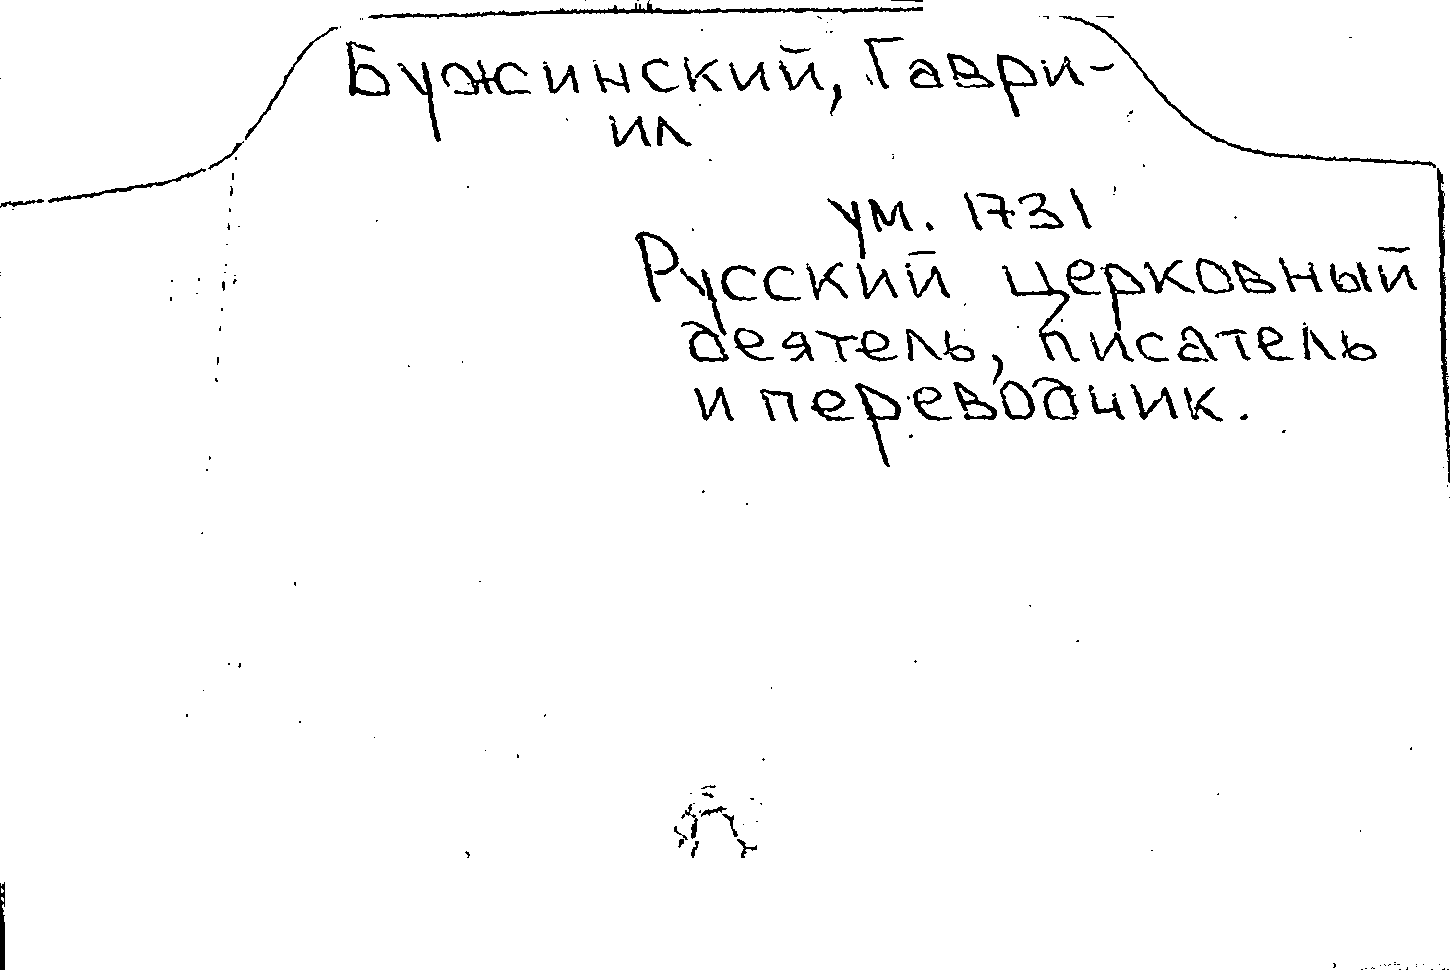 Бужинский, Гаври-
ил
ум. 1731
Русский церковный
деятель, писатель
и переводчик.